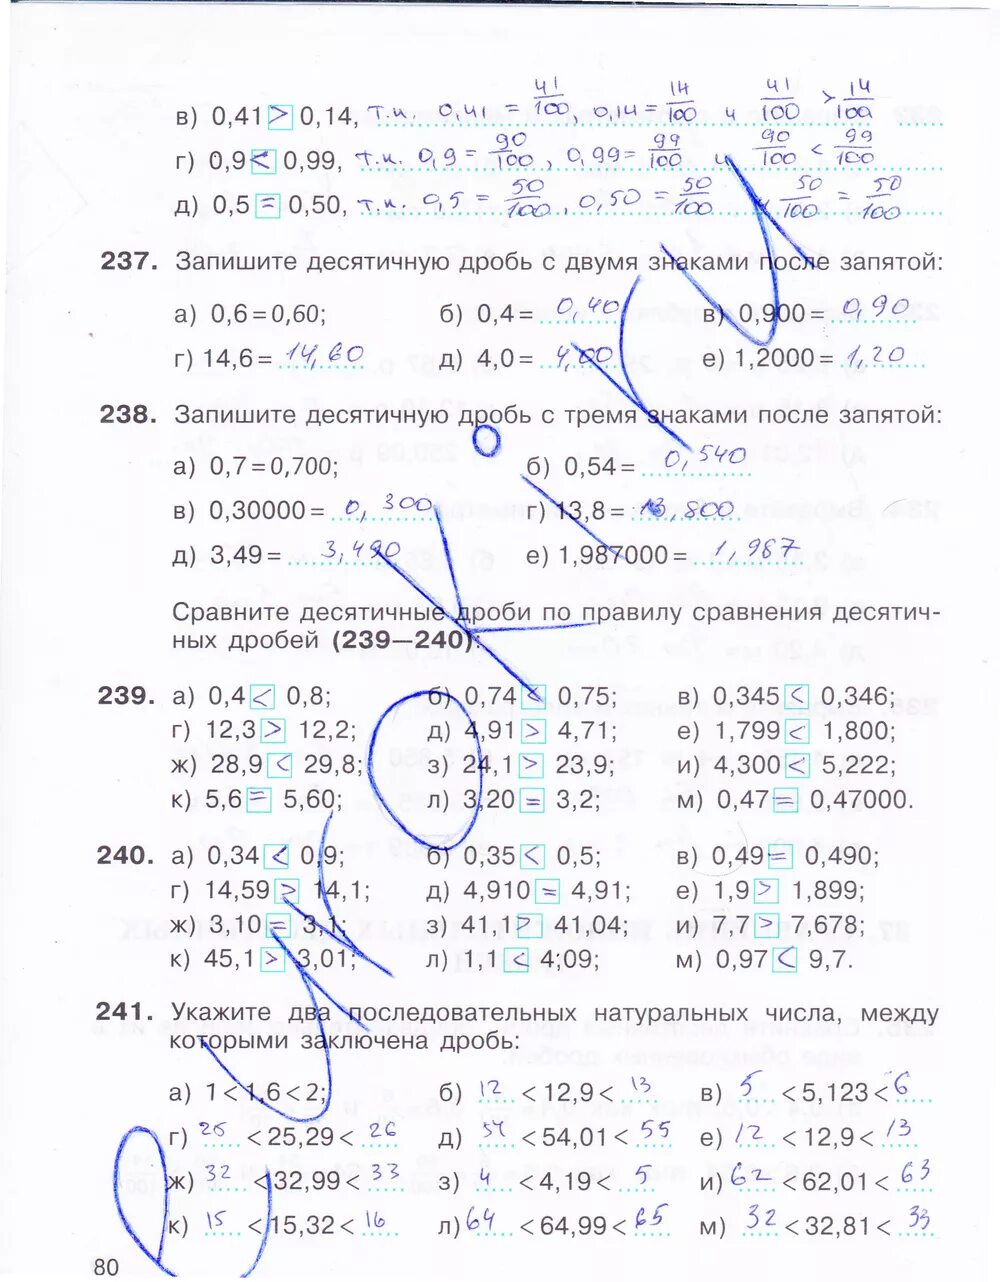 в) 0,41 > 0,14, т.к. 0,41 = 41/100, 0,14 = 14/100 и 41/100 > 14/100
г) 0,9 < 0,99, т.к. 0,9 = 90/100, 0,99 = 99/100 и 90/100 < 99/100
д) 0,5 = 0,50, т.к. 0,5 = 50/100, 0,50 = 50/100 и 50/100 = 50/100
237. Запишите десятичную дробь с двумя знаками после запятой:
а) 0,6 = 0,60; б) 0,4 = 0,40 в) 0,900 = 0,90
г) 14,6 = 14,60 д) 4,0 = 4,00 е) 1,2000 = 1,20
238. Запишите десятичную дробь с тремя знаками после запятой:
а) 0,7 = 0,700; б) 0,54 = 0,540
в) 0,30000 = 0,300 г) 13,8 = 13,800
д) 3,49 = 3,490 е) 1,987000 = 1,987
Сравните десятичные дроби по правилу сравнения десятич-
ных дробей (239—240):
239. а) 0,4 < 0,8; б) 0,74 < 0,75; в) 0,345 < 0,346;
г) 12,3 > 12,2; д) 4,91 > 4,71; е) 1,799 < 1,800;
ж) 28,9 < 29,8; з) 24,1 > 23,9; и) 4,300 < 5,222;
к) 5,6 = 5,60; л) 3,20 = 3,2; м) 0,47 = 0,47000.
240. а) 0,34 < 0,9; б) 0,35 < 0,5; в) 0,49 = 0,490;
г) 14,59 > 14,1; д) 4,910 = 4,91; е) 1,9 > 1,899;
ж) 3,10 = 3,1; з) 41,1 > 41,04; и) 7,7 > 7,678;
к) 45,1 > 3,01; л) 1,1 < 4,09; м) 0,97 < 9,7.
241. Укажите два последовательных натуральных числа, между
которыми заключена дробь:
а) 1 < 1,6 < 2; б) 12 < 12,9 < 13 в) 5 < 5,123 < 6
г) 25 < 25,29 < 26 д) 54 < 54,01 < 55 е) 12 < 12,9 < 13
ж) 32 < 32,99 < 33 з) 4 < 4,19 < 5 и) 62 < 62,01 < 63
к) 15 < 15,32 < 16 л) 64 < 64,99 < 65 м) 32 < 32,81 < 33
80